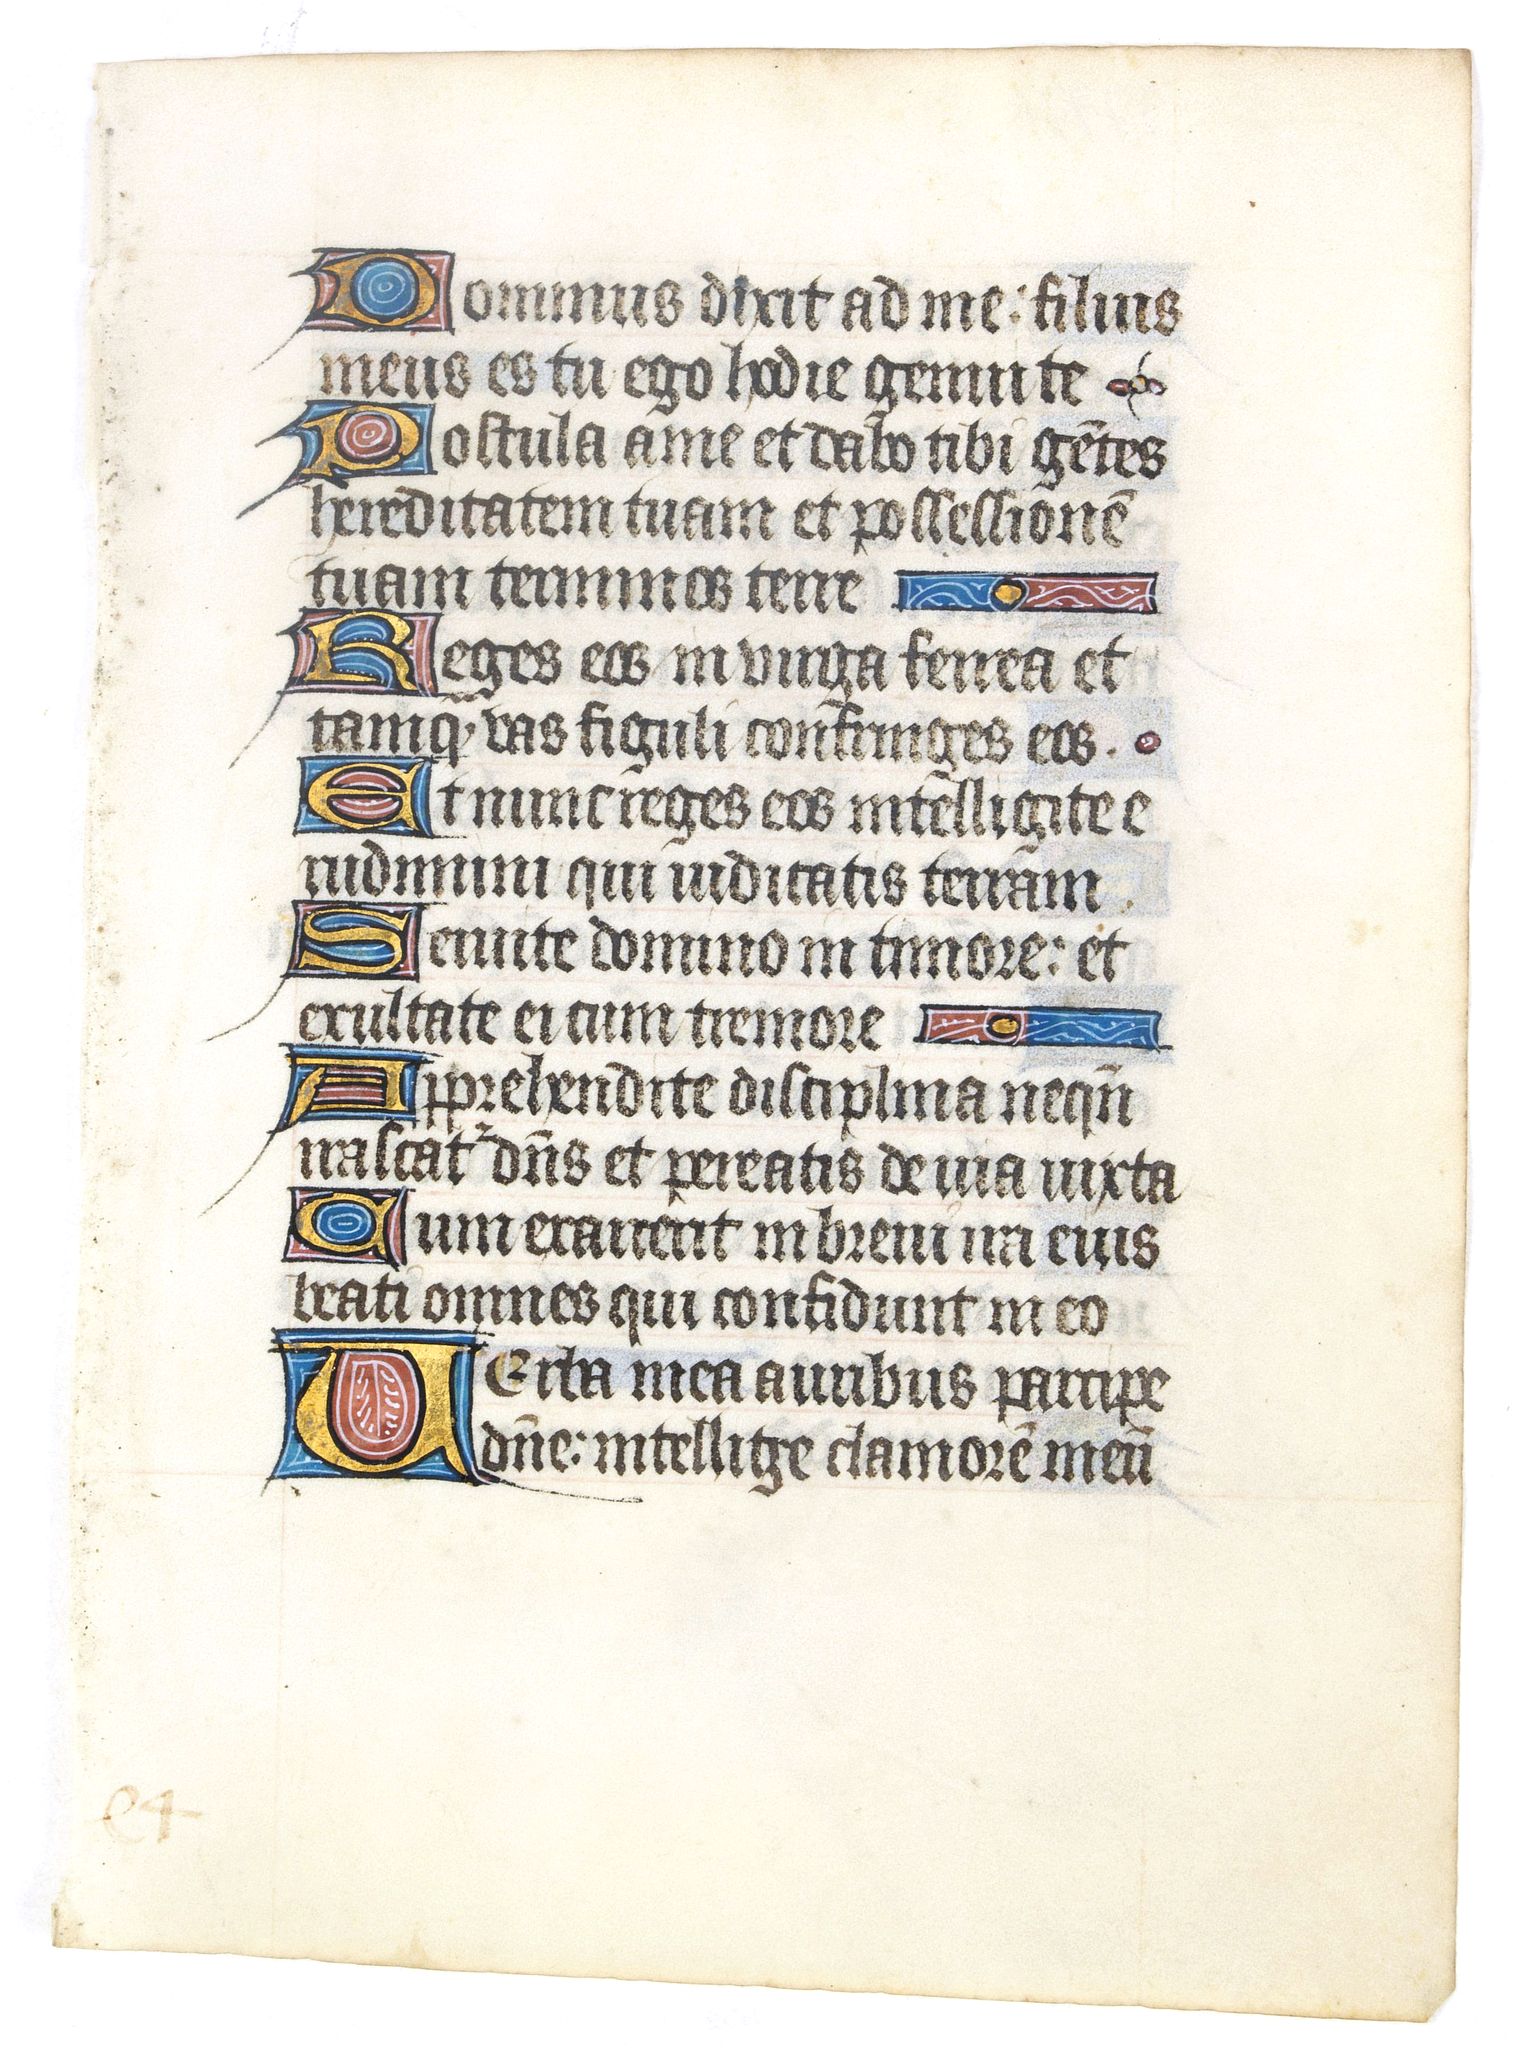 Dominus dixit ad me: filius
meus es tu ego hodie genui te
Postula a me et dabo tibi gētes
hereditatem tuam et possessionē
tuam terminos terre
Reges eos in virga ferrea et
tamq vas figuli confringes eos.
Et nunc reges eos intelligite e
rudimini qui iudicatis terram.
Seruite domino in timore: et
exultate ei cum tremore
Apprehendite disciplina nequn̄
irascat᷑ dn̄s et pereatis de uia iuxta
Cum exarserit in breui ira eius
beati omnes qui confidunt in eo
VErba mea auribus percipe
dn̄e: intellige clamorē meū
e4